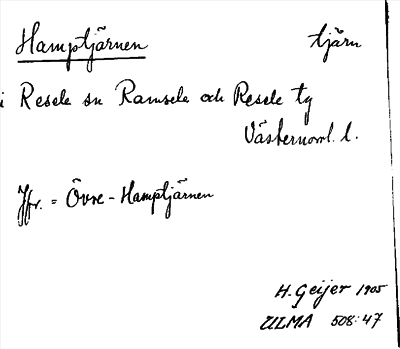 Hamptjärnen tjärn
i Resele sn Ramsele och Resele tg
Västernorrl. l.
Jfr. = Övre-Hamptjärnen
H. Geijer 1905
ULMA 508:47